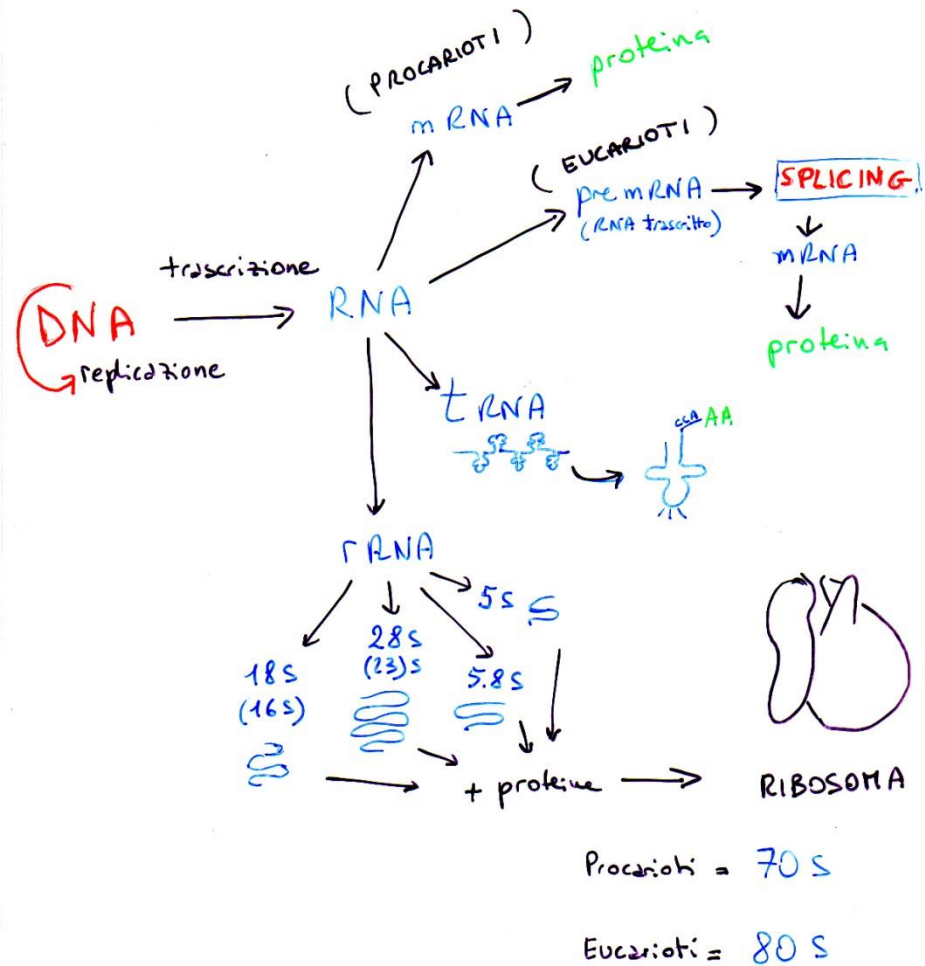 (PROCARIOTI)
mRNA
proteina
(EUCARIOTI)
pre mRNA
(RNA trascritto)
SPLICING
mRNA
proteina
trascrizione
DNA
RNA
replicazione
tRNA
CCA AA
rRNA
5s
28s
(23)s
18s
(16s)
5.8s
+ proteine
RIBOSOMA
Procarioti = 70 S
Eucarioti = 80 S